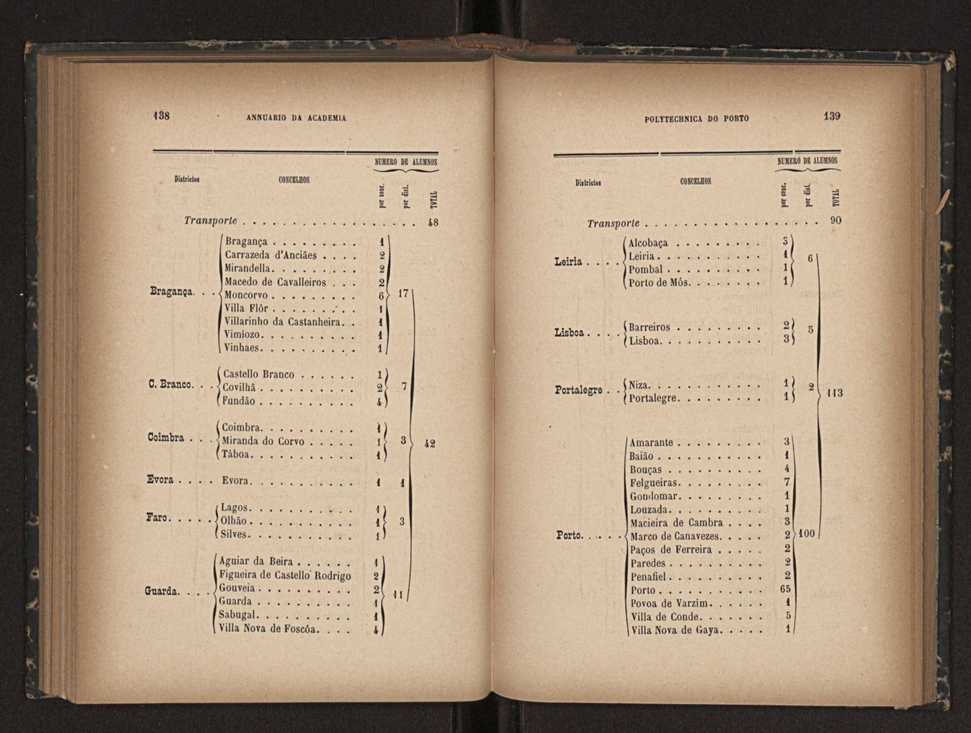 138 ANNUARIO DA ACADEMIA
NUMERO DE ALUMNOS
Districtos CONCELHOS por conc. por dist. TOTAL
Transporte . . . . . . . . . . . . . . . . . . 48
Bragança . . . . . . . . . 1
Carrazeda d'Anciães . . . . 2
Mirandella. . . . . . . . . 2
Macedo de Cavalleiros . . . 2
Bragança. . . Moncorvo . . . . . . . . . 6 17
Villa Flôr . . . . . . . . . 1
Villarinho da Castanheira. . 1
Vimiozo. . . . . . . . . . 1
Vinhaes. . . . . . . . . . 1
Castello Branco . . . . . . 1
C. Branco. . . Covilhã . . . . . . . . . . 2 7
Fundão . . . . . . . . . . 4
Coimbra. . . . . . . . . . 1
Coimbra . . . Miranda do Corvo . . . . . 1 3 42
Tàboa. . . . . . . . . . . 1
Evora . . . . Evora. . . . . . . . . . . 1 1
Lagos. . . . . . . . . . . 1
Faro. . . . . Olhão . . . . . . . . . . . 1 3
Silves. . . . . . . . . . . 1
Aguiar da Beira . . . . . . 1
Figueira de Castello Rodrigo 2
Guarda. . . . Gouveia . . . . . . . . . . 2 11
Guarda . . . . . . . . . . 1
Sabugal. . . . . . . . . . 1
Villa Nova de Foscôa. . . . 4
POLYTECHNICA DO PORTO 139
NUMERO DE ALUMNOS
Districtos CONCELHOS por conc. por dist. TOTAL
Transporte . . . . . . . . . . . . . . . . . . 90
Alcobaça . . . . . . . . . 3
Leiria . . . . Leiria. . . . . . . . . . . 1 6
Pombal . . . . . . . . . . 1
Porto de Mós. . . . . . . . 1
Lisboa. . . . Barreiros . . . . . . . . . 2 5
Lisboa. . . . . . . . . . . 3
Portalegre . . Niza. . . . . . . . . . . . 1 2 113
Portalegre. . . . . . . . . 1
Amarante . . . . . . . . . 3
Baião . . . . . . . . . . . 1
Bouças . . . . . . . . . . 4
Felgueiras. . . . . . . . . 7
Gondomar. . . . . . . . . 1
Louzada. . . . . . . . . . 1
Macieira de Cambra . . . . 3
Porto. . . . . Marco de Canavezes. . . . . 2 100
Paços de Ferreira . . . . . 2
Paredes . . . . . . . . . . 2
Penafiel . . . . . . . . . . 2
Porto . . . . . . . . . . . 65
Povoa de Varzim. . . . . . 1
Villa de Conde. . . . . . . 5
Villa Nova de Gaya. . . . . 1